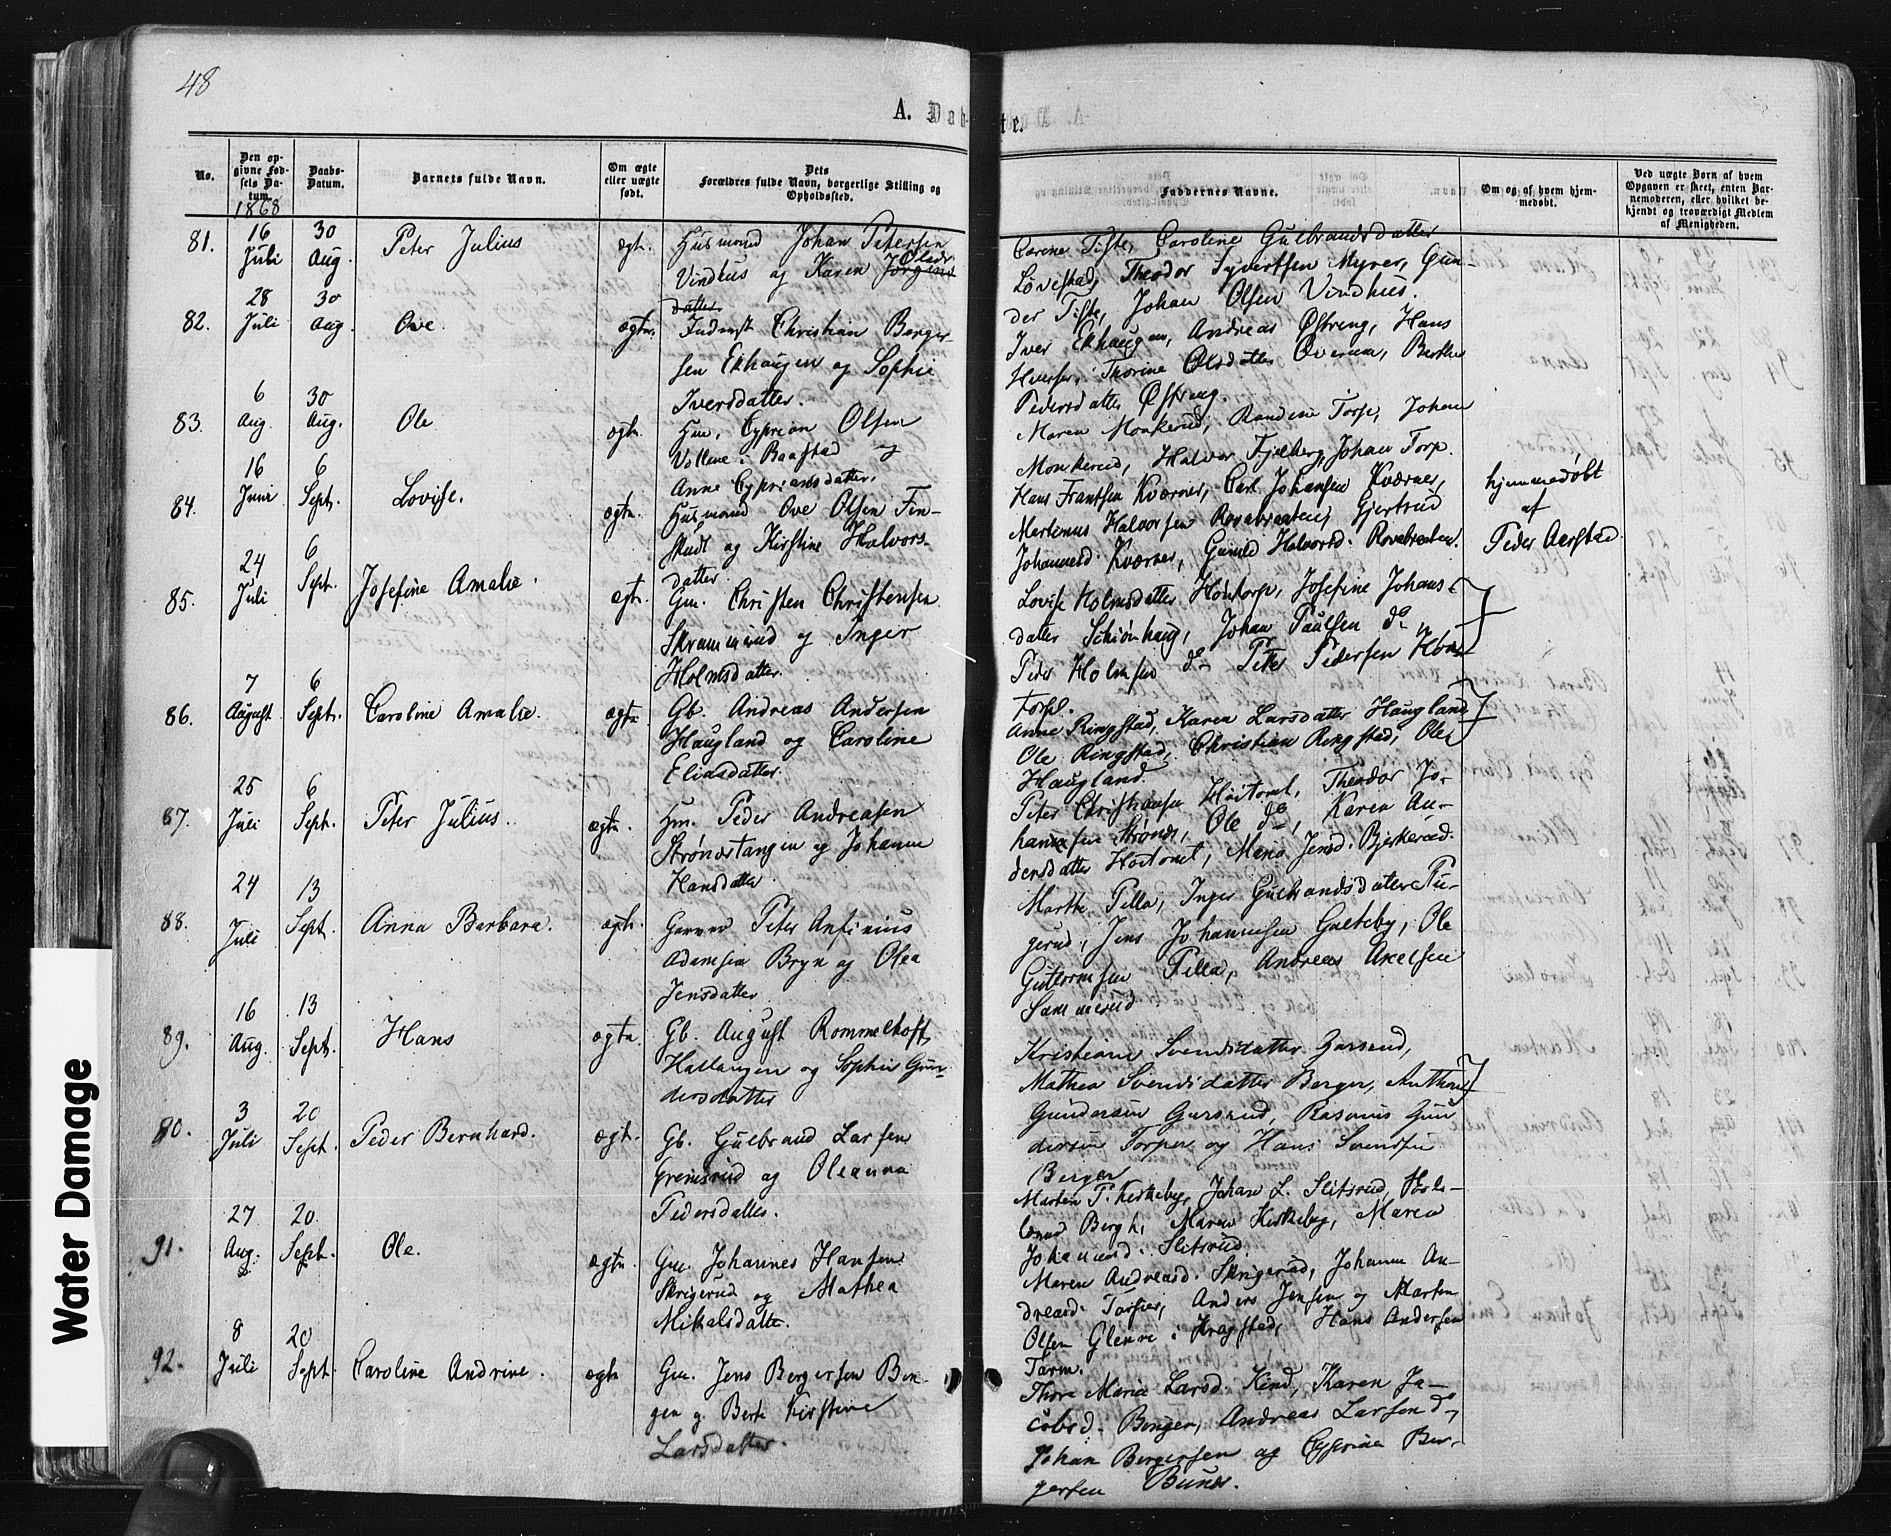 48
A. Dåb-
te.
No.
Den op-
givne Fød-
sels Da-
tum.
Daabs-
Datum.
Barnets fulde Navn.
Om ægte
eller uægte
født.
Dets
Forældres fulde Navn, borgerlige Stilling og
Opholdssted.
Faddernes Navne.
Om og af hvem hjem-
medøbt.
Ved uægte Børn af hvem
Opgaven er skeet, enten Bar-
nemoderen, eller hvilket be-
kjendt og troværdigt Medlem
af Menigheden.
1868
81. 16 Juli 30 Aug. Peter Julius ægt.
Husmand Johan Petersen
Olsd
Vindhus og Karen Jørgens
datter
Carene Tiste, Caroline Gulbrandsdatter
Løvestad, Theodor Syvertsen Myrer, Gun-
der Tiste, Johan Olsen Vindhus.
82. 28 Juli 30 Aug. Ove. ægte.
Inderst Christian Berger-
sen Ekhaugen og Sophie
Iversdatter.
Iver Ekhaugen, Andreas Østreng, Hans
Thorine Olsdatter Berthe
Pedersdatter Østreng.
83. 6 Aug. 30 Aug. Ole ægte
Hm. Cyprian Olsen
Vollene i Baastad og
Anne Cypriansdatter.
Maren Monkerud, Randine Torp, Johan
Monkerud, Halvor Fjelberg, Johan Torp.
84. 16 Juni 6 Sept. Lovise. ægte
Husmand Ove Olsen Fin-
stad og Kirstine Halvors-
datter.
Hans Frantsen Kværner, Carl Johansen Kværner,
Martinus Halvorsen Rovebraaten, Gjertrud
Johannesd. Kværner, Gunild Halvorsd. Rovebraaten.
hjemmedøbt
af
Peder Aarstad
85. 24 Juli 6 Sept. Josefine Amalie. ægte
Gm. Christen Christensen
Skrammerud og Inger
Holmsdatter.
Lovise Holmsdatter Høntorp, Josefine Johans-
datter Schiønhaug, Johan Paulsen do
Peder Holmsen do Peter Pedersen Høn-
torp.
86. 7 August 6 Sept. Caroline Amalie. ægte
Gb. Andreas Andersen
Haugland og Caroline
Eliasdatter.
Anne Ringstad, Karen Larsdatter Haugland
Ole Ringstad, Christian Ringstad, Ole
Haugland.
87. 25 Juli 6 Sept. Peter Julius. ægte.
Hm. Peder Andreasen
Strønestangen og Johanne
Hansdatter.
Peter Christiansen Høitomt, Theodor Jo-
hansen Strønes, Ole do, Karen An-
dersdatter Høitomt, Maria Jensd. Bjerkerud.
88. 24 Juli 13 Sept. Anna Barbara. ægte.
Garver Peter Anfinius
Adamsen Bryn og Olea
Jensdatter
Marthe Tella, Inger Gulbrandsdatter Tu-
gerud, Jens Johannesen Gulteby, Ole
Guttormsen Tella, Andreas Axelsen
Sammerud
89. 16 Aug. 13 Sept. Hans ægte
Gb. August Rommelhoft
Hallangen og Sophie Gun-
dersdatter
Kristiane Svendsdatter Garsrud,
Mathea Svendsdatter Berger, Anthon
Gundersen Garsrud, Rasmus Gun
dersen Torper og Hans Svendsen
Berger
80. 3 Juli 20 Sept. Peder Bernhard. ægt.
Gb. Gulbrand Larsen
Grensrud og Oleanna
Pedersdatter.
Marten P. Kirkeby, Johan L. Slitsrud,
Bergh, Maren Kirkeby, Maren
Johannesd. Slitsrud.
91. 27 Aug. 20 Sept. Ole. ægte
Gm. Johannes Hansen
Skrigerud og Mathea
Mikalsdatter.
Maren Andreasd. Skrigerud, Johanne An-
dreasd. Anders Jensen og Marten
Olsen Glenne i Kragstad, Hans Andersen
Tarm.
92. 8 Juli 20 Sept. Caroline Andrine. ægte
Gm. Jens Bergersen Bun-
gen og Berte Kirstine
Larsdatter.
Thore Maria Larsd. Kind, Karen Ja-
cobsd. Bunger, Andreas Larsen do,
Johan Bergersen og Cyprian Ber-
gersen Bunes.
Water Damage